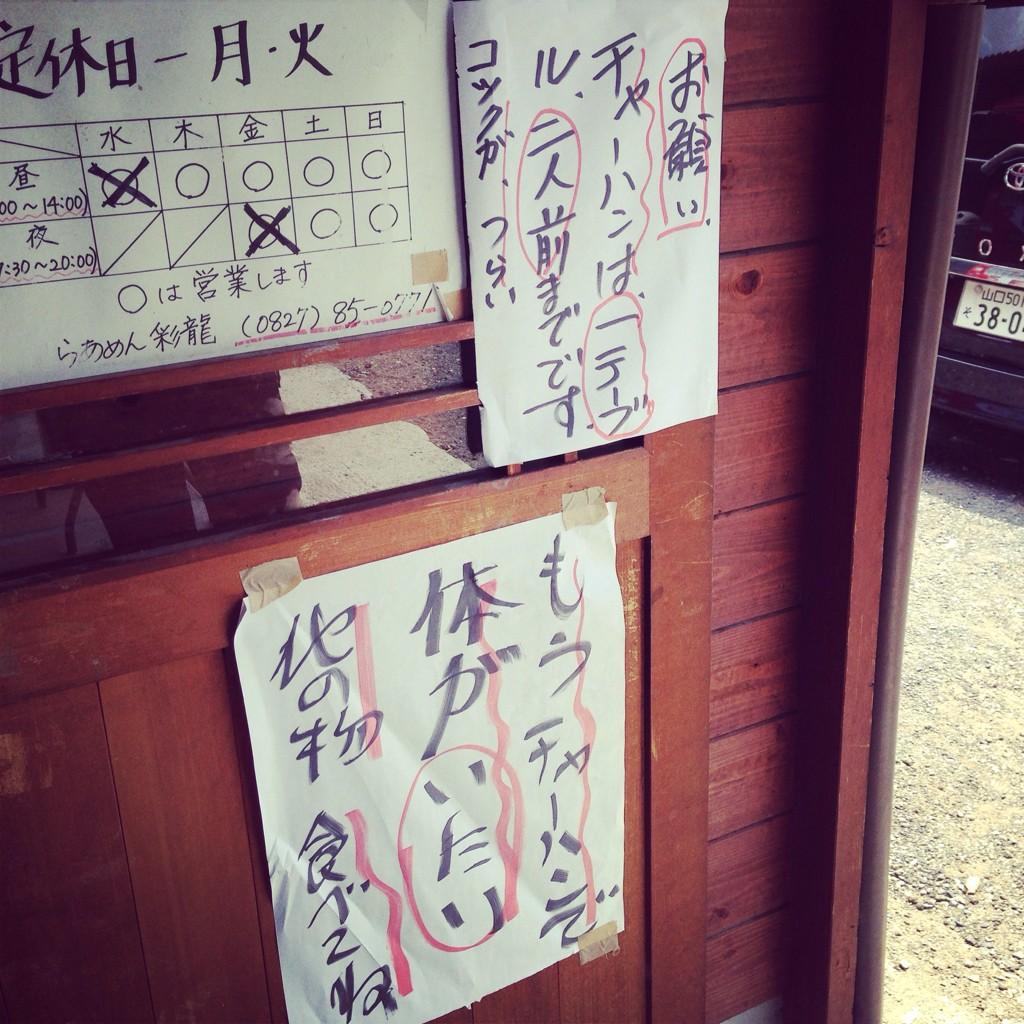 定休日－月・火
水 木 金 土 日
昼
00～14:00)
夜
:30～20:00)
○は営業します
らあめん彩龍 (0827) 85-0771
お願い
チャーハンは、一テーブ
ル、二人前までです。
コックが、つらい
もうチャーハンで
体がいたい
他の物
食べてね
山口501
そ 38-0